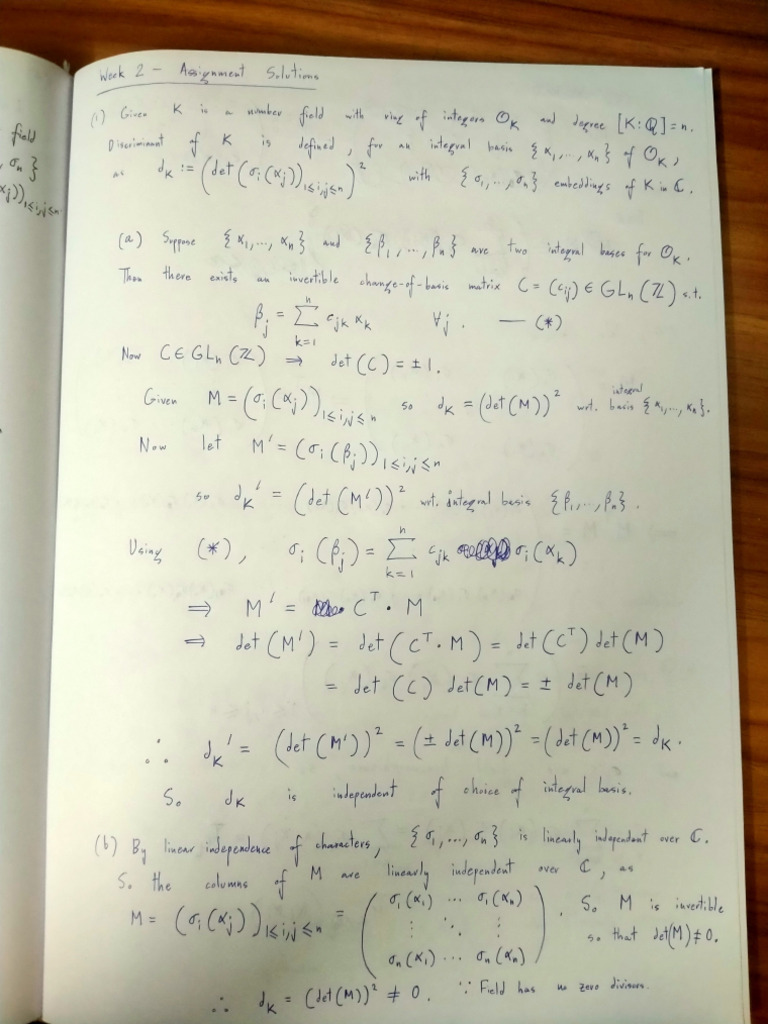 field
, σn }
(αj))1≤i,j≤n.
Week 2 - Assignment Solutions
(1) Given K is a number field with ring of integers OK and degree [K:Q]=n.
Discriminant of K is defined, for an integral basis {α1,...,αn} of OK,
as dK := (det(σi(αj))1≤i,j≤n)² with {σ1,...,σn} embeddings of K in ℂ.
(a) Suppose {α1,...,αn} and {β1,...,βn} are two integral bases for OK.
Then there exists an invertible change-of-basis matrix C = (cij) ∈ GLn(ℤ) s.t.
βj = Σ_{k=1}^{n} cjk αk ∀j. — (*)
Now C∈GLn(ℤ) ⇒ det(C) = ±1.
Given M = (σi(αj))1≤i,j≤n so dK = (det(M))² wrt. integral basis {α1,...,αn}.
Now let M' = (σi(βj))1≤i,j≤n
so dK' = (det(M'))² wrt. integral basis {β1,...,βn}.
Using (*), σi(βj) = Σ_{k=1}^{n} cjk σi(αk)
⇒ M' = Cᵀ · M
⇒ det(M') = det(Cᵀ·M) = det(Cᵀ) det(M)
= det(C) det(M) = ± det(M)
∴ dK' = (det(M'))² = (± det(M))² = (det(M))² = dK.
So dK is independent of choice of integral basis.
(b) By linear independence of characters, {σ1,...,σn} is linearly independent over ℂ.
So the columns of M are linearly independent over ℂ, as
M = (σi(αj))1≤i,j≤n = ( σ1(α1) ... σ1(αn) ⋮ ⋱ ⋮ σn(α1) ... σn(αn) ). So M is invertible
so that det(M)≠0.
∴ dK = (det(M))² ≠ 0. ∵ Field has no zero divisors.